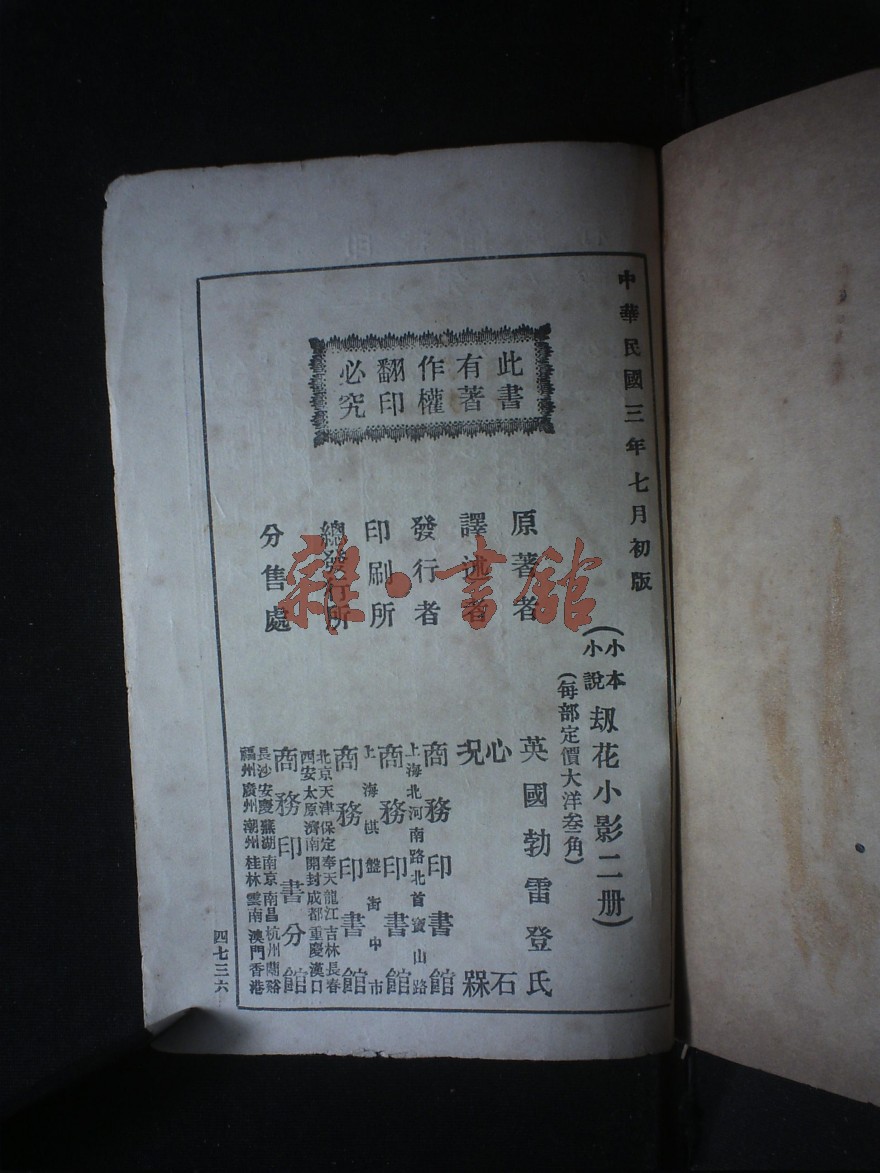 中華民國三年七月初版
此書
有著
作權
翻印
必究
(小本
小說
刼花小影二册)
(每部定價大洋叁角)
原著者 英國勃雷登氏
譯述者 心石
況槑
發行者 商務印書館
上海北河南路北首寶山路
印刷所 商務印書館
上海棋盤街中市
總發行所 商務印書館
北京天津保定奉天龍江吉林長春
西安太原濟南開封成都重慶漢口
分售處 商務印書分館
長沙安慶蕪湖南京南昌杭州蘭谿
福州廣州潮州桂林雲南澳門香港
四七三六
雜·書館